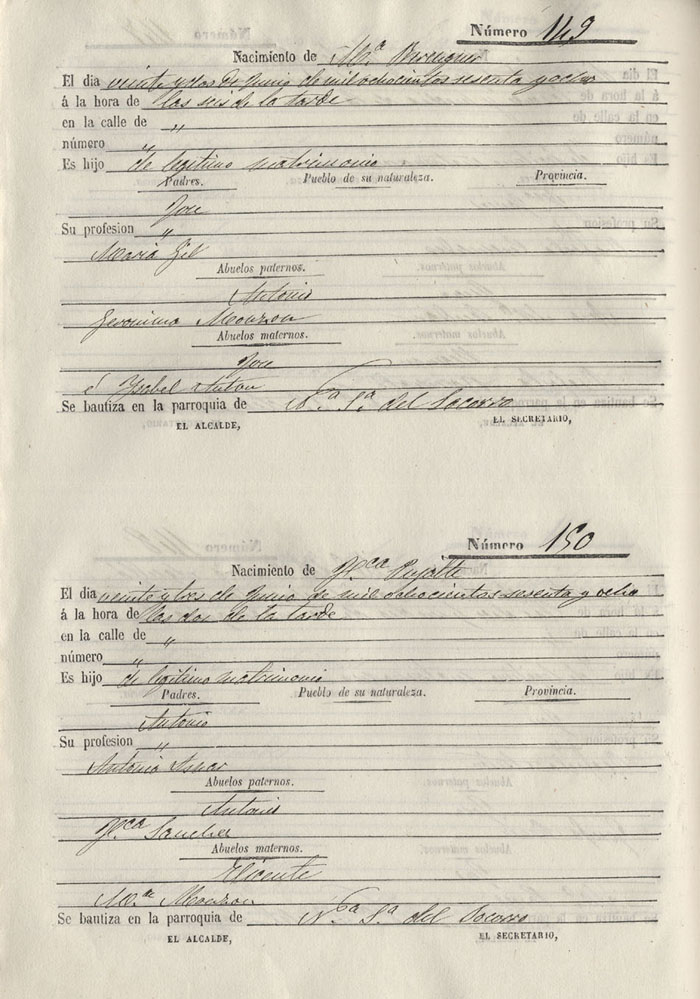 Número 149
Nacimiento de M.ª Berenguer
El dia veinte y dos de Junio de mil ochocientos sesenta y ocho
á la hora de las seis de la tarde
en la calle de "
número "
Es hijo de legitimo matrimonio
Padres. Pueblo de su naturaleza. Provincia.
Jose
Su profesion "
Maria Gil
Abuelos paternos.
Antonio
Geronima Monzon
Abuelos maternos.
Jose
é Ysabel Anton
Se bautiza en la parroquia de N.ª S.ª del Socorro
EL ALCALDE, EL SECRETARIO,
Número 150
Nacimiento de
El dia veinte y tres de Junio de mil ochocientos sesenta y ocho
á la hora de las dos de la tarde
en la calle de "
número "
Es hijo de legitimo matrimonio
Padres. Pueblo de su naturaleza. Provincia.
Antonio
Su profesion "
Antonia
Abuelos paternos.
Antonio
Sanchez
Abuelos maternos.
Vicente
Monzon
Se bautiza en la parroquia de N.ª S.ª del Socorro
EL ALCALDE, EL SECRETARIO,